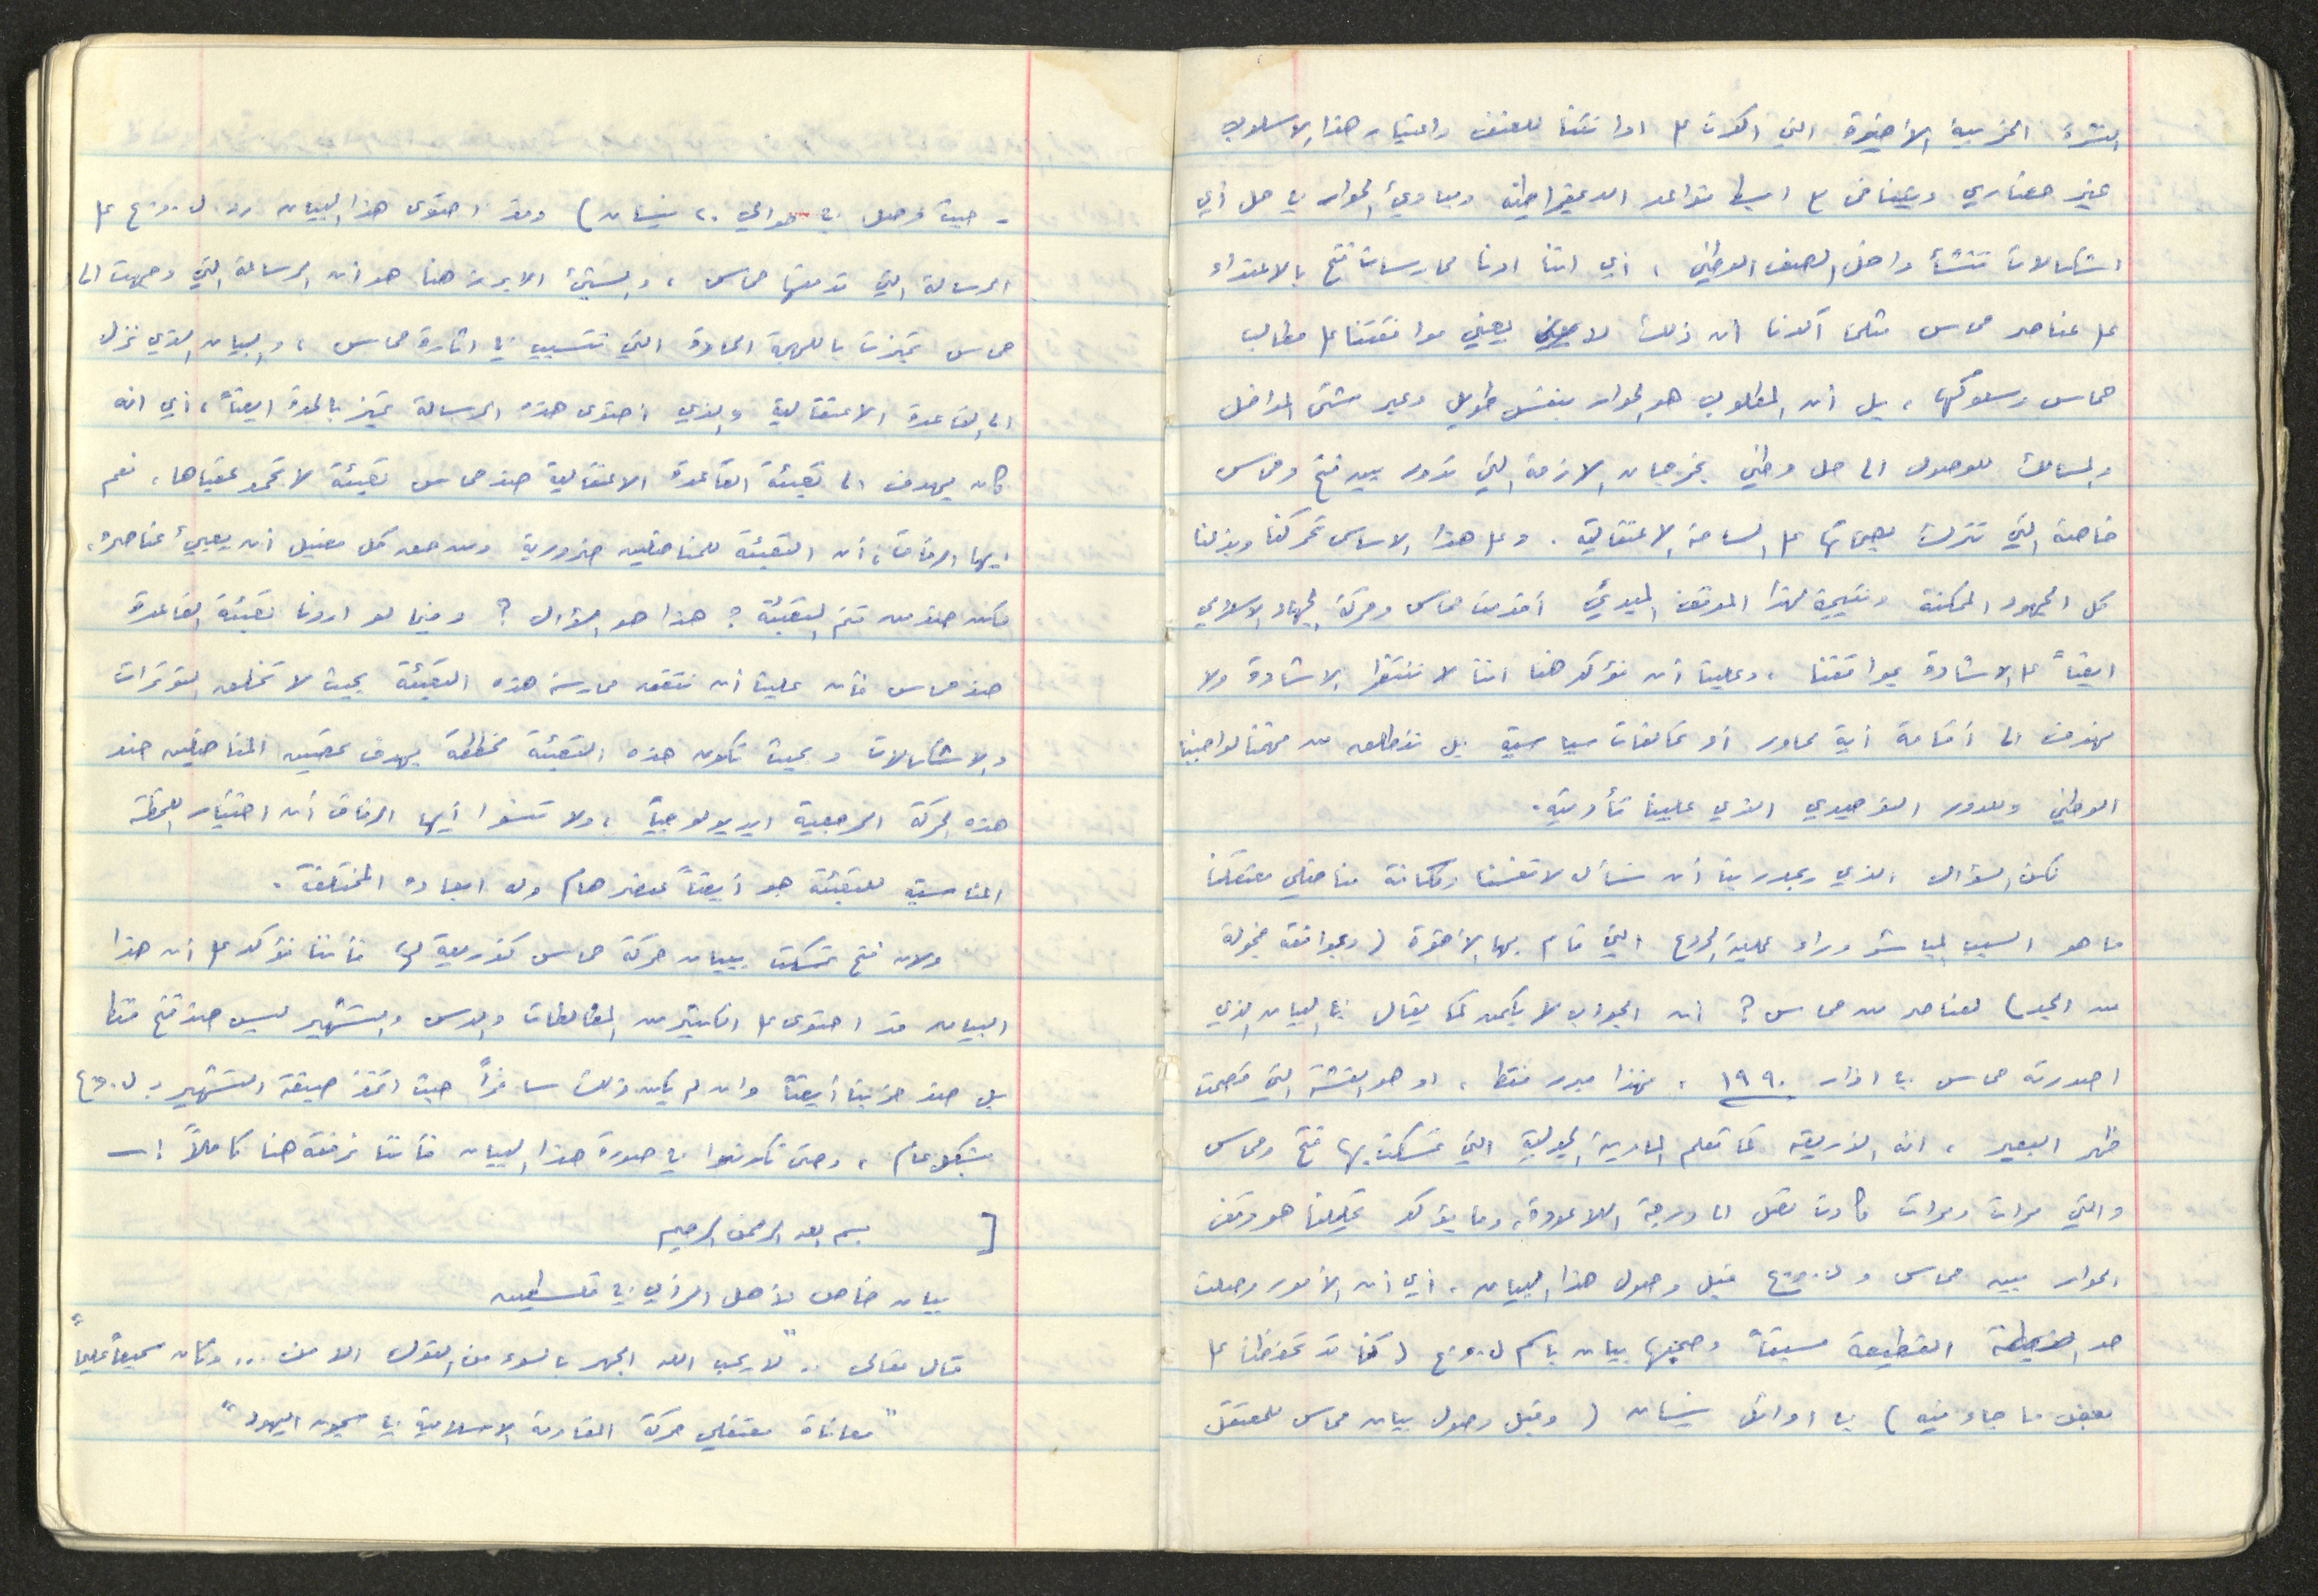 النشرة الحزبية الأخيرة التي اكدت على ادانتنا للعنف واعتبار هذا الاسلوب
غير حضاري ويتناقض مع ابسط قواعد الديمقراطية ومبادئ الحوار في حل أي
اشكالات تنشأ داخل الصف الوطني ، أي اننا ادنا ممارسات فتح بالاعتداء
على عناصر حماس مثلما أكدنا أن ذلك لا يعني موافقتنا على مطالب
حماس وسلوكها ، بل أن المطلوب هو الحوار بنفس طويل وعبر شتى المداخل
والمسالك للوصول الى حل وطني يخرجنا من الازمة التي تدور بين فتح وحماس
خاصة التي تترك بصماتها على الساحة الاعتقالية . وعلى هذا الاساس تحركنا وبذلنا
كل الجهود الممكنة ونتيجة لهذا الموقف المبدئي أقدمت حماس وحركة الجهاد الاسلامي
ايضاً على الاشادة بمواقفنا ، وعلينا أن نؤكد هنا اننا لا ننتظر الاشادة ولا
نهدف الى أقامة أية محاور أو تحالفات سياسية بل ننطلق من فهمنا لواجبنا
الوطني وللدور التوحيدي الذي علينا تأديته .
لكن السؤال الذي يجدر بنا أن نسأل لانفسنا ولكافة مناضلي معتقلنا
ما هو السبب المباشر وراء عملية الردع التي قام بها الأخوة ( وبموافقة
من ) لعناصر من حماس ؟ أن الجواب لا يكمن كما يقال في البيان الذي
اصدرته حماس في اذار ١٩٩٠ ، فهذا مبرر فقط ، او هو القشة التي قصمت
ظهر البعير ، انه الذريعة كما تعلم المادية الجدلية التي تمسكت بها فتح وحماس
والتي مرات ومرات كادت تصل الى درجة اللاعودة ، وما يؤكد تحليلنا هو وقف
الحوار بين حماس و ل.و.ع قبل وصول هذا البيان ، أي أن الأمور وصلت
حد القطيعة مسبقاً وصيغها بيان باسم ل.و.ع ( كنا قد تحفظنا على
بعض ما جاء فيه ) في اوائل نيسان ( وقبل وصول بيان حماس للمعتقل
- حيث وصل في حوالي ٢٠ نيسان ) وقد احتوى هذا البيان رد ل.و.ع على
الرسالة التي قدمتها حماس ، والشيئ الابرز هنا هو أن الرسالة التي وجهت الى
حماس تميزت باللهجة الحادة التي تتسبب في اثارة حماس ، والبيان الذي نزل
الى القاعدة الاعتقالية والذي احتوى هذه الرسالة تميز بالحدة ايضاً ، أي انه
كان يهدف الى تعبئة القاعدة الاعتقالية ضد حماس تعبئة لا تحمد عقباها ، نعم
أيها الرفاق ، أن التعبئة للمناضلين ضرورية ومن حق كل فصيل أن يعبئ عناصره ،
لكن ضد من تتم التعبئة ؟ هذا هو السؤال ؟ وفيما لو اردنا تعبئة القاعدة
ضد حماس فأن علينا أن نتقن ممارسة هذه التعبئة بحيث لا تخلق التوترات
والاشكالات وبحيث تكون هذه التعبئة مخططة بهدف تحصين المناضلين ضد
هذه الحركة الرجعية ايديولوجياً ، ولا تنسوا أيها الرفاق أن اختيار اللحظة
المناسبة للتعبئة هو أيضاً عنصر هام وله ابعاده المختلفة .
ولان فتح تمسكت ببيان حركة حماس كذريعة لها فأننا نؤكد على أن هذا
البيان قد احتوى على الكثير من المغالطات والدس والتشهير ليس ضد فتح فقط
بل ضد حزبنا أيضاً وان لم يكن ذلك سافراً حيث اتخذ صيغة التشهير بـ ل.و.ع
بشكل عام ، وحتى تكونوا في صورة هذا البيان فأننا نرفقه هنا كاملاً :ــ
[ بسم الله الرحمن الرحيم
بيان خاص لأهل الرأي في فلسطين
قال تعالى .. " لا يحب الله الجهر بالسوء من القول الا من ... وكان سميعاً عليماً "
" معاناة معتقلي حركة المقاومة الاسلامية في سجون اليهود "